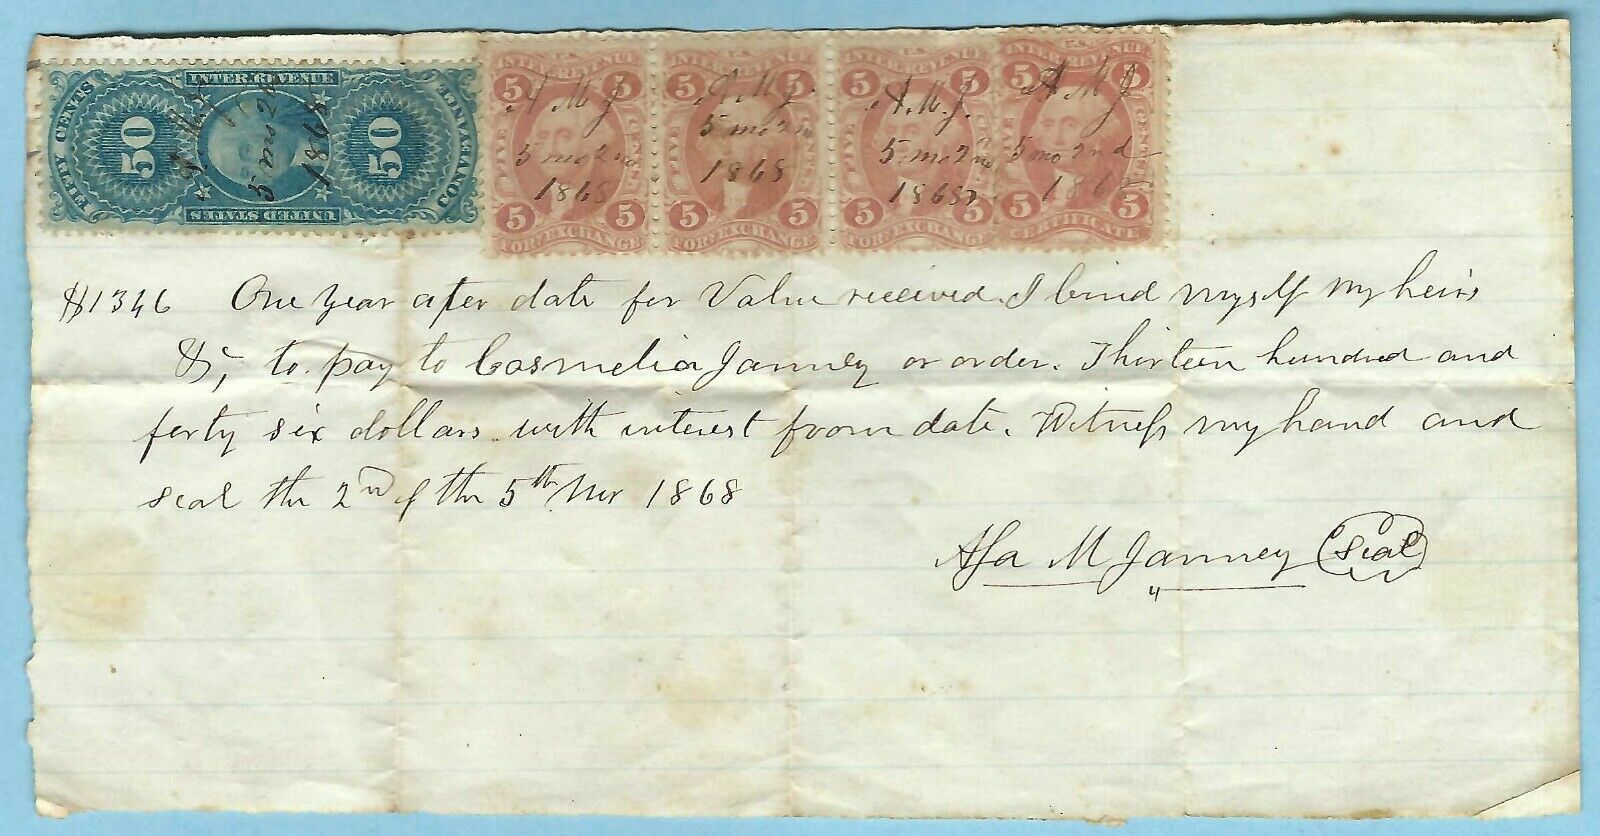 INTER. REVENUE
FIFTY CENTS
50
50
CONVEYANCE
UNITED STATES
5 mo 2
1868
U.S.
INTER. REVENUE
5 5
A M J
FIVE CENTS
5 mo 2nd
1868
5 5
FOR. EXCHANGE
INTER. REVENUE
5 5
A. M. J.
FIVE CENTS
5 mo 2nd
1868
5 5
FOR. EXCHANGE
U.S.
INTER. REVENUE
5 5
A. M. J.
FIVE CENTS
5 mo 2nd
1868
5 5
FOR. EXCHANGE
U.S.
INTER. REVENUE
5 5
A M J
FIVE CENTS
5 mo 2nd
1868
5 5
CERTIFICATE
$1346 One Year after date for Value received. I bind myself my heirs
&c, to pay to Cosmelia Janney or order. Thirteen hundred and
forty six dollars with interest from date. Witness my hand and
seal the 2nd of the 5th Mo 1868
Asa M Janney (Seal)